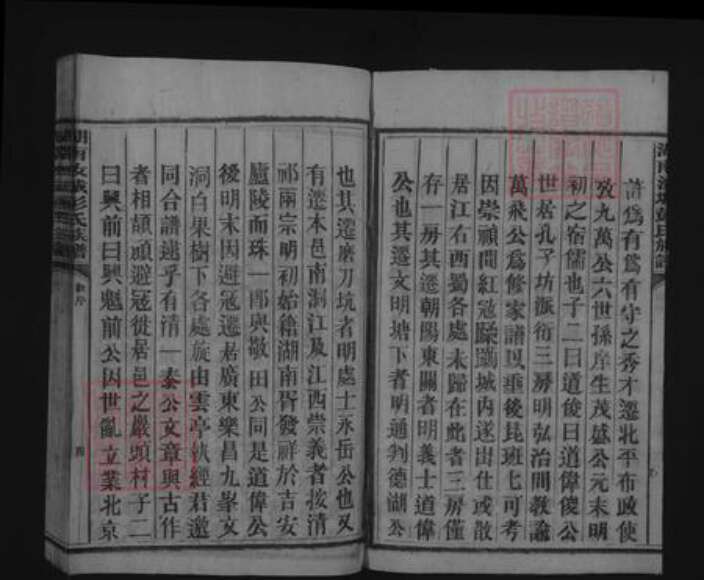 許爲有爲有守之秀才遷北平布政使
攷九萬公六世孫庠生茂盛公元末明
初之宿儒也子二曰道俊曰道偉俊公
世居孔子坊派衍三房明弘治間教諭
萬飛公爲修家譜以垂後昆班七可考
因崇禎間紅冦蹂劉城内遂出仕或散
居江右西蜀各處未歸在此者三房僅
存一房其遷朝陽東關者明義士道偉
公也其遷文明塘下者明通判德湖公
也其遷磨刀坑者明處士永岳公也又
有遷本邑南洞江及江西崇義者按清
祁兩宗明初始籍湖南皆發祥於吉安
廬陵而珠一郎與敬田公同是道偉公
後明末因避冦遷居廣東樂昌九峯文
洞白果樹下各處旋由雲亭執經君邀
同合譜逮乎有清一泰公文章與古作
者相頡頏避冦徙居邑之嚴頭村子二
曰興前曰興魁前公因世亂立業北京
彭氏族譜